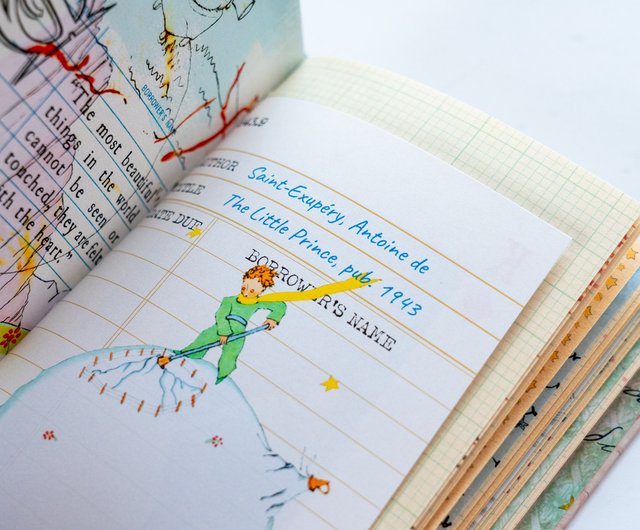 BORROWER'S
"The most beautiful
things in the world
cannot be seen or
touched, they are felt
with the heart."
AUTHOR Saint-Exupéry, Antoine de
TITLE The Little Prince, pub. 1943
DATE DUE
BORROWER'S NAME